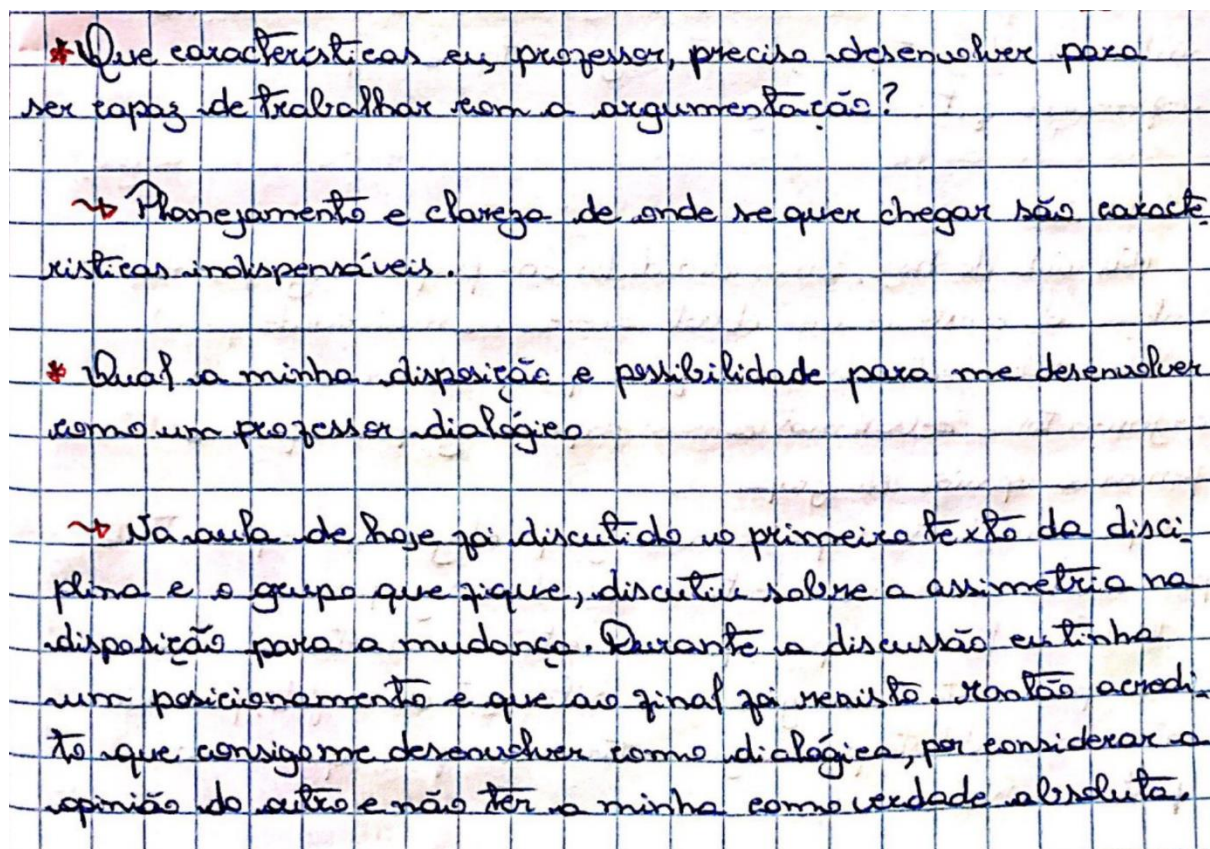 * Que características eu, professor, preciso desenvolver para
ser capaz de trabalhar com a argumentação?
↝ Planejamento e clareza de onde se quer chegar são caracte
rísticas indispensáveis.
* Qual a minha disposição e possibilidade para me desenvolver
como um professor dialógico
↝ Na aula de hoje foi discutido o primeiro texto da disci-
plina e o grupo que fiquei, discutiu sobre a assimetria na
disposição para a mudança. Durante a discussão eu tinha
um posicionamento e que ao final foi revisto. acredi-
to que consigo me desenvolver como dialógica, por considerar a
opinião do outro e não ter a minha como verdade absoluta.